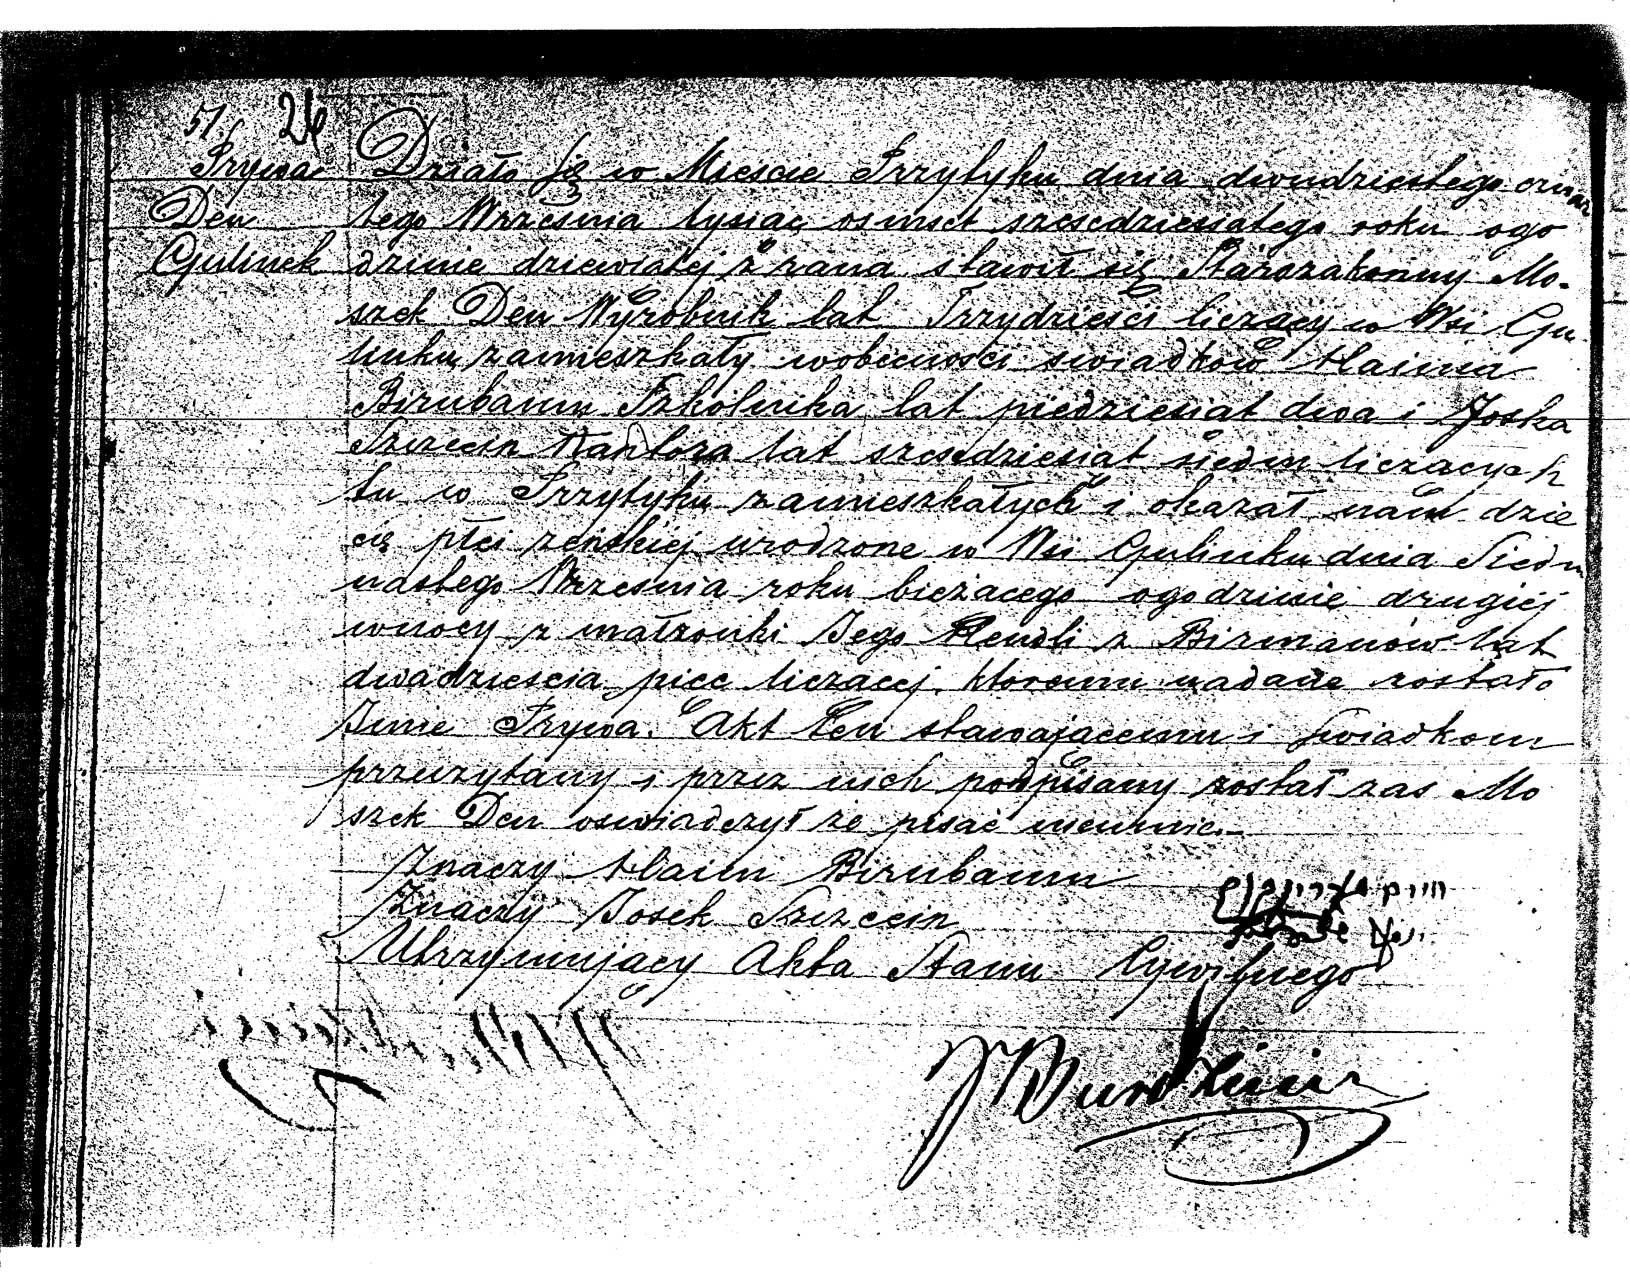 51. 26
Frywa
Den
Gulinek
Działo się w Miescie Przytyku dnia dwudziestego czwar
tego Wrzesnia tysiąc osmset szescdziesiatego roku ogo
dzinie dziewiatej z rana stawił się Starozakonny Mo-
szek Den Wyrobnik lat Trzydziesci liczący w Wsi Gu
linku zamieszkały wobecności swiadków Haima
Birnbaum Szkolnika lat piedziesiat dwa i Joska
Szczecin Kantora lat szescdziesiat siedm liczacych
tu w Przytyku zamieszkałych i okazał nam dzie
cię płci zenskiej urodzone w Wsi Gulinku dnia Siedm
nastego Wrzesnia roku bieżacego ogodzinie drugiéj
wnocy z małzonki Jego Hendli z Birmanów lat
dwadziescia piec liczacej, ktoremu nadane zostało
Imie Frywa. Akt ten stawajacemu i swiadkom
przeczytany i przez nich podpisany został zas Mo
szek Den oswiadczył ze pisać nieumie.
Znaczy Haim Birnbaum
חיים בירנבוים
Znaczy Josek Szczecin
Utrzymujący Akta Stanu Cywilnego